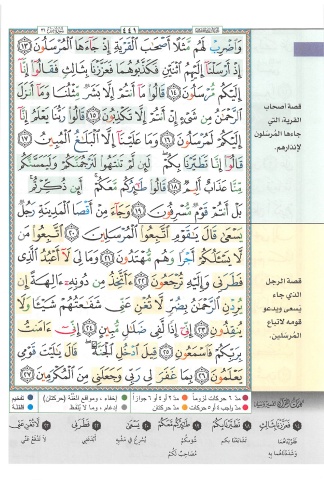 ٤٤١
وَاضْرِبْ لَهُم مَّثَلًا أَصْحَٰبَ الْقَرْيَةِ إِذْ جَآءَهَا الْمُرْسَلُونَ ١٣
إِذْ أَرْسَلْنَآ إِلَيْهِمُ اثْنَيْنِ فَكَذَّبُوهُمَا فَعَزَّزْنَا بِثَالِثٍ فَقَالُوٓا إِنَّآ
إِلَيْكُم مُّرْسَلُونَ ١٤ قَالُوا مَآ أَنتُمْ إِلَّا بَشَرٌ مِّثْلُنَا وَمَآ أَنزَلَ
الرَّحْمَٰنُ مِن شَىْءٍ إِنْ أَنتُمْ إِلَّا تَكْذِبُونَ ١٥ قَالُوا رَبُّنَا يَعْلَمُ إِنَّآ
إِلَيْكُمْ لَمُرْسَلُونَ ١٦ وَمَا عَلَيْنَآ إِلَّا الْبَلَٰغُ الْمُبِينُ ١٧
قَالُوٓا إِنَّا تَطَيَّرْنَا بِكُمْ لَئِن لَّمْ تَنتَهُوا لَنَرْجُمَنَّكُمْ وَلَيَمَسَّنَّكُم
مِّنَّا عَذَابٌ أَلِيمٌ ١٨ قَالُوا طَٰٓئِرُكُم مَّعَكُمْ أَئِن ذُكِّرْتُم
بَلْ أَنتُمْ قَوْمٌ مُّسْرِفُونَ ١٩ وَجَآءَ مِنْ أَقْصَا الْمَدِينَةِ رَجُلٌ
يَسْعَىٰ قَالَ يَٰقَوْمِ اتَّبِعُوا الْمُرْسَلِينَ ٢٠ اتَّبِعُوا مَن
لَّا يَسْـَٔلُكُمْ أَجْرًا وَهُم مُّهْتَدُونَ ٢١ وَمَا لِىَ لَآ أَعْبُدُ الَّذِى
فَطَرَنِى وَإِلَيْهِ تُرْجَعُونَ ٢٢ ءَأَتَّخِذُ مِن دُونِهِٓ ءَالِهَةً إِن
يُرِدْنِ الرَّحْمَٰنُ بِضُرٍّ لَّا تُغْنِ عَنِّى شَفَٰعَتُهُمْ شَيْـًٔا وَلَا
يُنقِذُونِ ٢٣ إِنِّىٓ إِذًا لَّفِى ضَلَٰلٍ مُّبِينٍ ٢٤ إِنِّىٓ ءَامَنتُ
بِرَبِّكُمْ فَاسْمَعُونِ ٢٥ قِيلَ ادْخُلِ الْجَنَّةَ قَالَ يَٰلَيْتَ قَوْمِى
يَعْلَمُونَ ٢٦ بِمَا غَفَرَ لِى رَبِّى وَجَعَلَنِى مِنَ الْمُكْرَمِينَ ٢٧
قصة أصحاب
القرية، التي
جاءها المرسلون
لإنذارهم.
قصة الرجل
الذي جاء
يسعى ويدعو
قومه لاتباع
المرسلين.
مد ٦ حركات لزوماً مد ٢ أو ٤ أو ٦ جوازاً إخفاء، ومواقع الغنة (حركتان) تفخيم
مد واجب ٤ أو ٥ حركات مد حركتان إدغام، وما لا يلفظ قلقلة